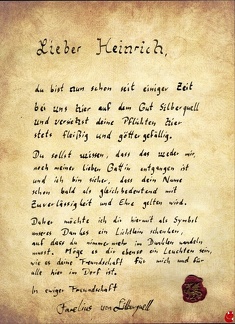 Lieber Heinrich,
du bist nun schon seit einiger Zeit
bei uns hier auf dem Gut Silberquell
und versiehst deine Pflichten hier
stets fleißig und göttergefällig.
Du sollst wissen, dass das weder mir,
noch meiner lieben Gattin entgangen ist
und ich bin sicher, dass dein Name
schon bald als gleichbedeutend mit
Zuverlässigkeit und Ehre gelten wird.
Daher möchte ich dir hiermit als Symbol
unseres Dankes ein Lichtlein schenken,
auf dass du nimmermehr im Dunklen wandeln
musst. Möge es dir ebenso ein Leuchten sein,
wie es deine Freundschaft für mich und für
alle hier im Dorf ist.
In ewiger Freundschaft
von Silberquell